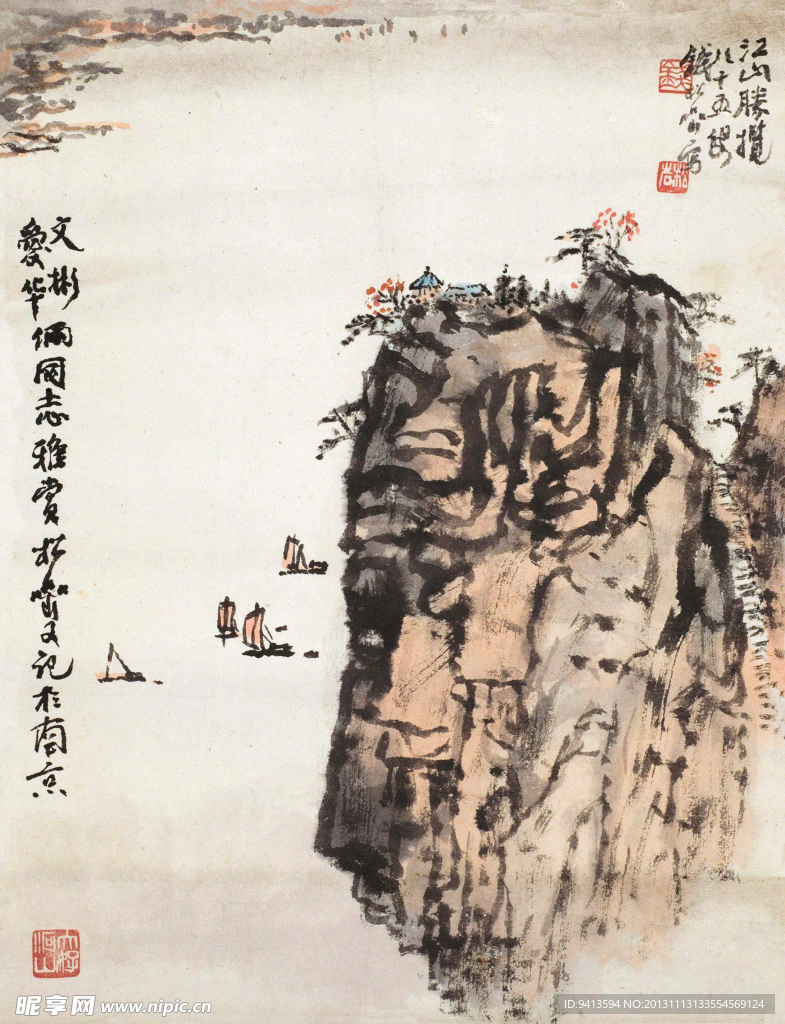 江山勝攬
八十五叟
錢松喦寫
松喦
文彬
愛华倆同志雅賞松喦又記於南京
大好河山
昵享网 www.nipic.cn
ID:9413594 NO:20131113133554569124